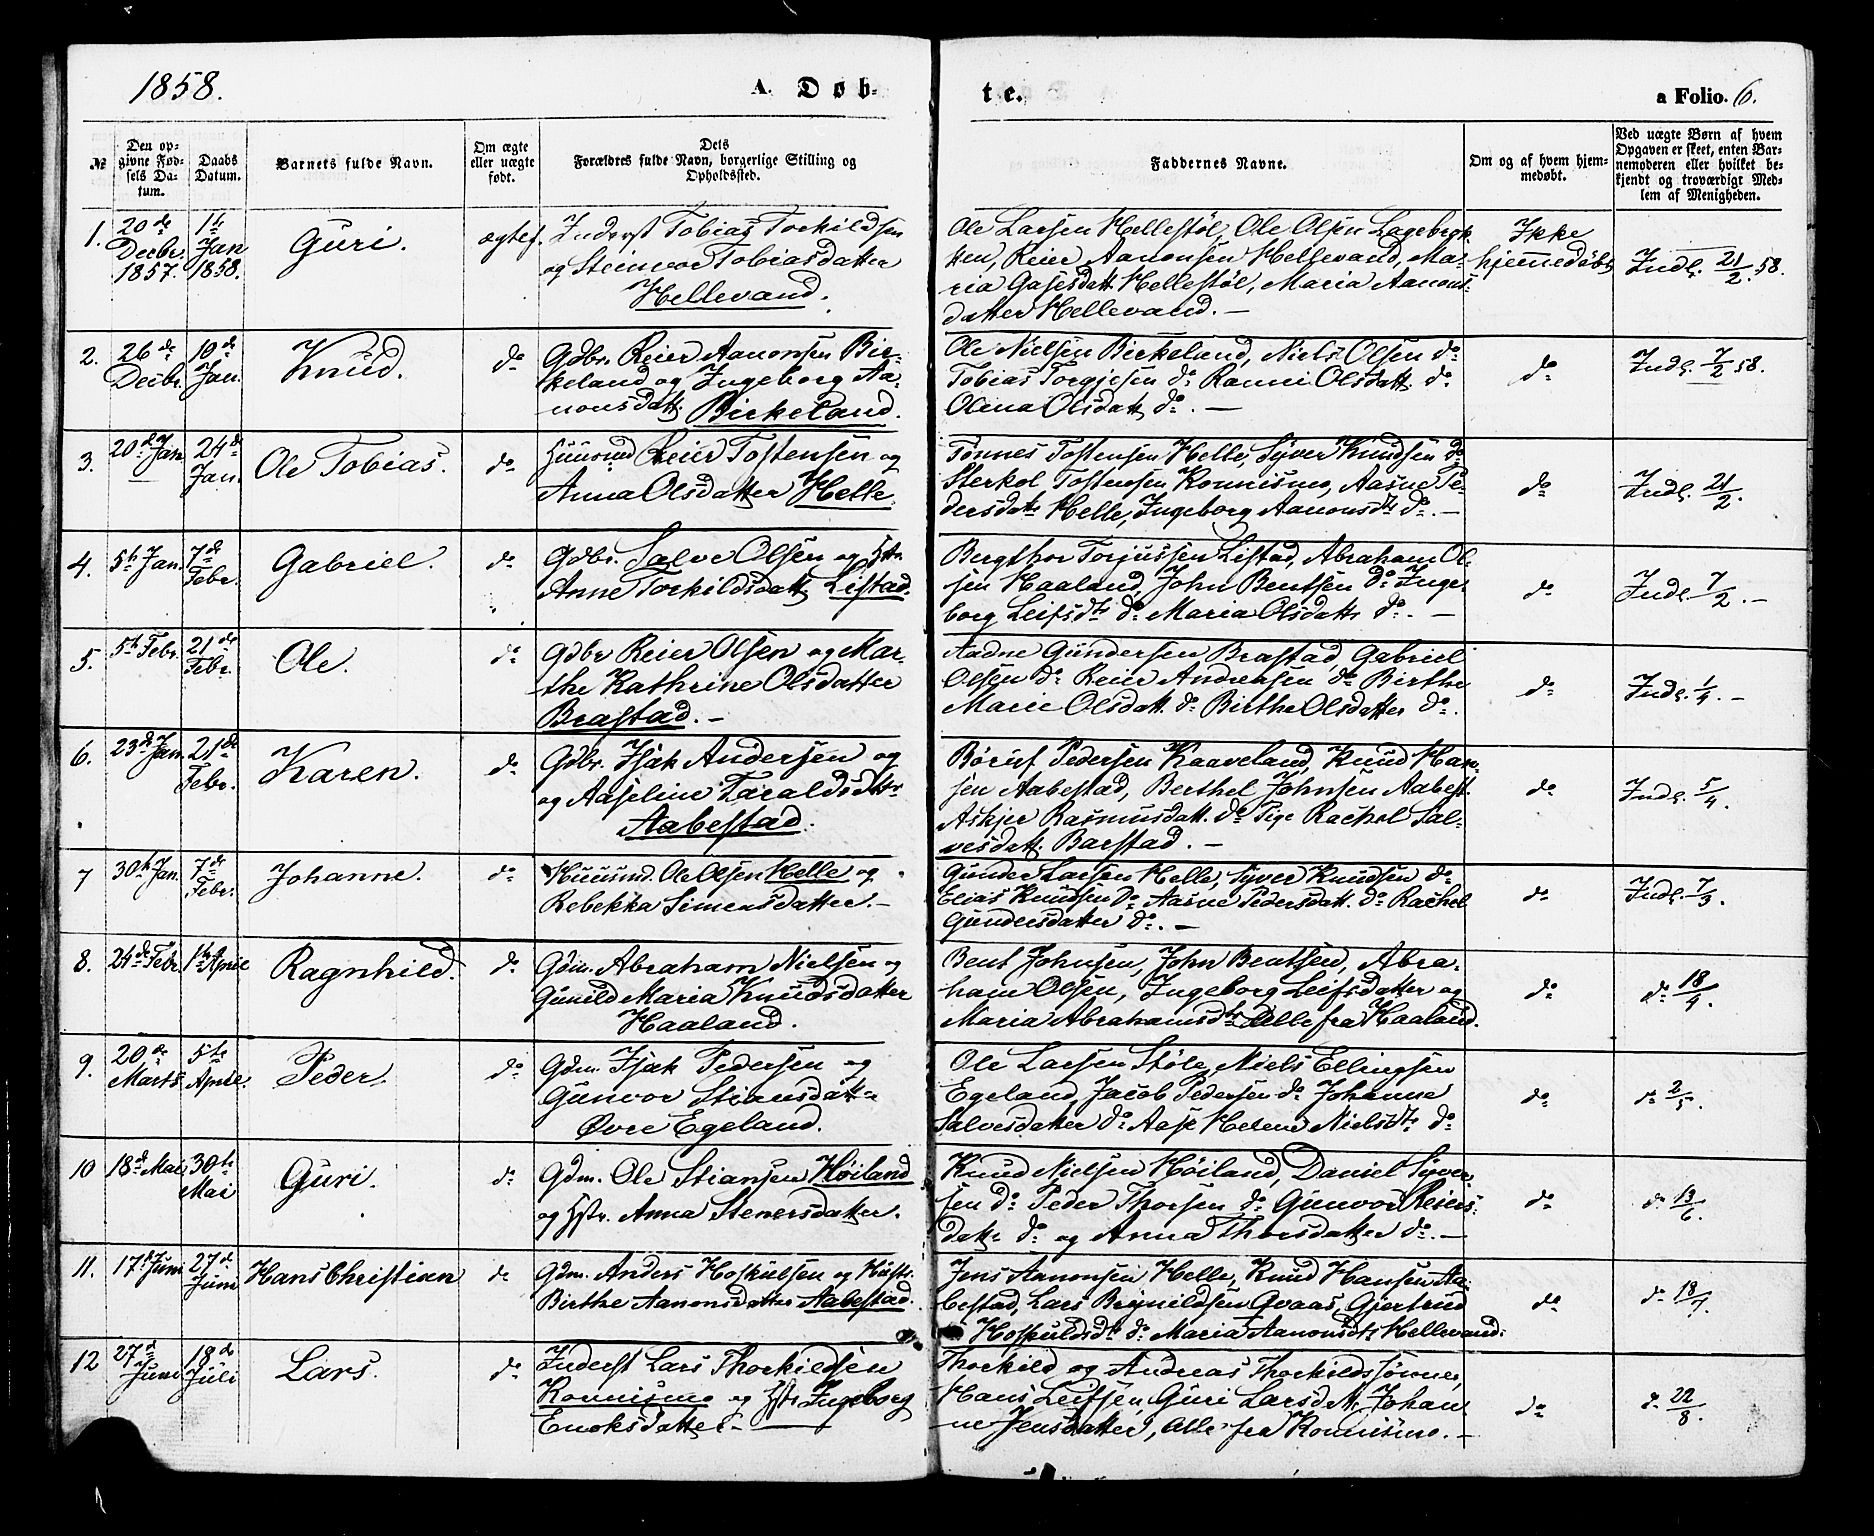 1858.
A. Døb-
te.
a Folio. 6.
№
Den op-
givne Fød-
sels Da-
tum.
Daabs
Datum.
Barnets fulde Navn.
Om ægte
eller uægte
født.
Dets
Forældres fulde Navn, borgerlige Stilling og
Opholdssted.
Faddernes Navne.
Om og af hvem hjem-
medøbt.
Ved uægte Børn af hvem
Opgaven er skeet, enten Bar-
nemoderen eller hvilket be-
kjendt og troværdigt Med-
lem af Menigheden.
1.
20de
Decbr.
1857.
1ste
Jan
1858.
Guri.
ægtef.
Inderst Tobias Torkildsen
og Steinvor Tobiasdatter
Hellevand.
Ole Larsen Hellestøl, Ole Olsen
Reier Aanonsen Hellevand, Ma-
ria Hellestøl, Maria Aanons-
datter Hellevand. —
Ikke
hjemmedøbt
Indl. 21/2. 58.
2.
26de
Decbr.
10de
Jan.
Knud.
do
Gdbr. Reier Aanonsen Bir-
keland og Ingeborg Aa-
nonsdatt. Birkeland.
Ole Nielsen Birkeland, Niels Olsen do
Tobias Torgjesen do Ranni Olsdatt. do
Olena Olsdatt do. —
do
Indl. 7/2 58.
3.
20de Jan
24de
Jan.
Ole Tobias.
do
Huusmd Reier Tostensen og
Anna Olsdatter Helle.
Tønnes Tostensen Helle, Syver Knudsen do
Sterkol Tostensen Konnismo, Aasne Pe-
dersdatt. Helle, Ingeborg Aanonsdt. do. —
do
Indl. 21/2.
4.
5te Jan.
7de
Febr.
Gabriel.
do
Gdbr. Salve Olsen og Hstr.
Anne Torkildsdatt. Listad.
Bergthor Torjussen Listad, Abraham Ol-
sen Haaland, John Bentsen do Inge-
borg Leifsdtr do Maria Olsdattr do. —
do
Indl. 7/2. —
5.
5te Febr.
21de
Febr.
Ole.
do
Gdbr Reier Olsen og Mar-
the Kathrine Olsdatter
Brastad. —
Aadne Gundersen Brastad, Gabriel
Olsen do Reier Andreasen do Birthe
Marie Olsdatt. do Birthe Olsdatter do.
do
Indl. 1/4. —
6.
23de Jan.
21de
Febr.
Karen.
do
Gdbr. Isak Andersen og
og Aaseline Taraldsdttr
Aabestad.
Børuf Pedersen Kaaveland, Knud Han-
sen Aabestad, Berthel Johnsen Aabest.
Askjer Rasmusdatt. do Pige Rachel Sal-
vesdatt. Barstad. —
do
Indl. 5/4.
7
30te Jan.
7de
Febr.
Johanne.
do
Huusmd. Ole Olsen Helle og
Rebekka Simensdatter. —
Gunder Larsen Helle, Syver Knudsen do
Elias Knudsen do Aasne Pedersdatt. do Rachel
Gundersdatter do. —
do
Indl. 7/3.
8.
24de Febr
1ste April
Ragnhild.
do
Gdm. Abraham Nielsen og
Gunild Maria Knudsdatter
Haaland.
Bent Johnsen, John Bentsen, Abra-
ham Olsen, Ingeborg Leifsdatter og
Maria Abrahamsdtr Alle fra Haaland.
do
do 18/4.
9.
20de
Marts
5te
April.
Peder.
do
Gdm. Isak Pedersen og
Gunvor Stiansdattr
Øvre Egeland.
Ole Larsen Støle, Niels Ellingsen
Egeland, Jacob Pedersen do Johanne
Salvesdatter do Aase Helene Nielsdtr do
do
do 2/5.
10
18de Mai
30te
Mai
Guri.
do
Gdm. Ole Stiansen Høiland
og Hstr. Anna Stenersdatter.
Knud Nielsen Høiland, Daniel Syver-
sen do Peder Thorsen do Gunvor Reiers-
dattr do og Anna Thorsdatter do. —
do
do 13/6.
11.
17de Juni
27de
Juni
Hans Christian
do
Gdm. Anders Hoskulsen og Hustr.
Birthe Aanonsdatter Aabestad.
Jens Aanonsen Helle, Knud Hansen Aa-
bestad, Lars Brynildsen Qvaas, Gjertrud
Hoskuldsdtr do Maria Aanonsdtr Hellevand.
do
do 18/7.
12
27de
Juni
18de
Juli
Lars.
do
Inderst Lars Thorkildsen
Konnismo og Hstr Ingeborg
Enoksdatter —
Thorkild og Andreas Thorkildssønner,
Hans Leifsen, Guri Larsdtr, Johan-
ne Jensdatter, Alle fra Konnismo. —
do
do 22/8.